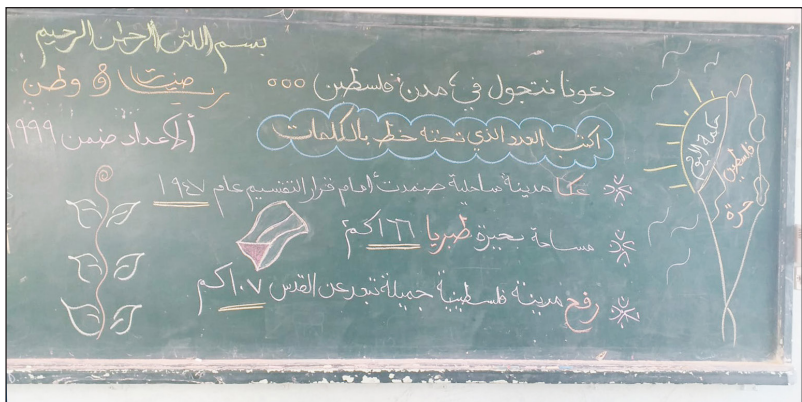 بسم الله الرحمن الرحيم
رياضيات في وطن
الأعداد ضمن 1999
دعونا نتجول في مدن فلسطين ٥٥٥
اكتب العدد الذي تحته خط بالكلمات
عكا مدينة ساحلية صمدت أمام قرار التقسيم عام ١٩٤٧
مساحة بحيرة طبريا ١٦٦ كم
رفح مدينة فلسطينية جميلة تبعد عن القدس ١٠٧ كم
فلسطين
حرة